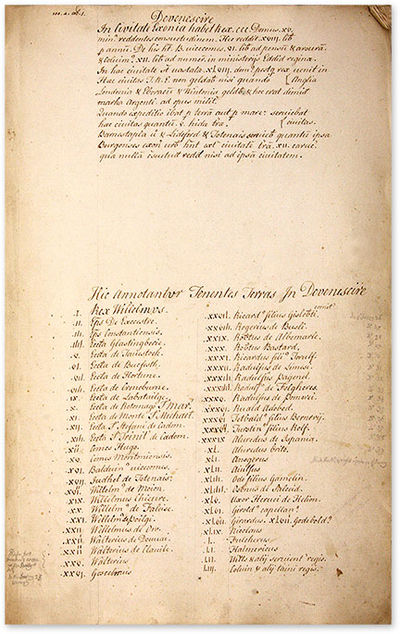 Devenescire
In Civitate Exonia habet Rex. ccc Domus. xv.
min' reddentes consuetudinem. Hec reddit. xviii. lib
p annū. De his ht B. uicecomes. vi. lib ad pensū & arsurā.
& Coluin'. xii. lib ad numer. in ministerijs Eddid regina.
In hac ciuitate st uastatæ. xlviii. dom' postq rex uenit in
Hæc ciuitas T.R.E. non geldab nisi quando Anglia
Lundonia & Eboracū & Wintonia geldb & hoc erat dimid
marka Argenti ad opus militū.
Quando expeditio ibat p terrā aut p mare: seruiebat
hæc ciuitas quantū .v. hidæ træ. ciuitas.
Barnestapla ū & Lideford & Totenais seruieb quantū ipsa
Burgenses Exon urb' hnt ext ciuitatē trā. xii. caruc'.
quæ nullā csuetud redd nisi ad ipsā ciuitatem.
Hic Annotantvr Tenentes Terras In Devenescire
.I. Rex Willelmvs.
.II. Eps De Execestre.
.III. Eps Constantiensis.
.IIII. Eccla Glastingberie.
.V. Eccla de Tauestoch.
.VI. Eccla de Bucfesth.
.VII. Eccla de Hortune.
.VIII. Eccla de Crneburne.
.IX. Eccla de Labatailge.
.X. Eccla de Rotomago S' Mar'.
.XI. Eccla de Monte S' Michael'.
.XII. Eccla S' Stefani de Cadom.
.XIII. Eccla S' Trinit' de Cadom.
.XIIII. Comes Hugo.
.XV. Comes Moritoniensis.
.XVI. Balduin' uicecomes.
.XVII. Judhel de Totenais.
.XVIII. Willelm' de Moion.
.XIX. Willelmus Chieure.
.XX. Willelm' de Faleise.
.XXI. Willelm' de Poilgi.
.XXII. Willelmus de Ow.
.XXIII. Walterius de Douuai.
.XXIIII. Walterius de Clauile.
.XXV. Walterius.
.XXVI. Goscelmus
.XXVII. Ricard' filius Gisloberti comit'
.XXVIII. Rogerius de Busli.
.XXIX. Robtus de Albemarle.
.XXX. Robtus Bastard.
.XXXI. Ricardus fili' Torulf.
.XXXII. Radulfus de Limesi.
.XXXIII. Radulfus Pagenel.
.XXXIIII. Radulf' de Felgheres.
.XXXV. Radulfus de Pomerei.
.XXXVI. Ruald Adobed.
.XXXVII. Tetbald' filius Bernerij.
.XXXVIII. Turstin' filius Rolf.
.XXXIX. Aluredus de Ispania.
.XL. Aluredus brito.
.XLI. Ansgerus
.XLII. Aiulfus
.XLIII. Odo filius Gamelin.
.XLIIII. Osbernus de Salceid.
.XLV. Uxor Heruei de Helion.
.XLVI. Girold' capellan'.
.XLVII. Girardus. XLVIII. Godebold'.
.XLIX. Nicolaus
.L. Fulcherus
.LI. Haimericus
.LII. Willo & alij seruient' regis.
.LIII. Coluin & alij taini regis.